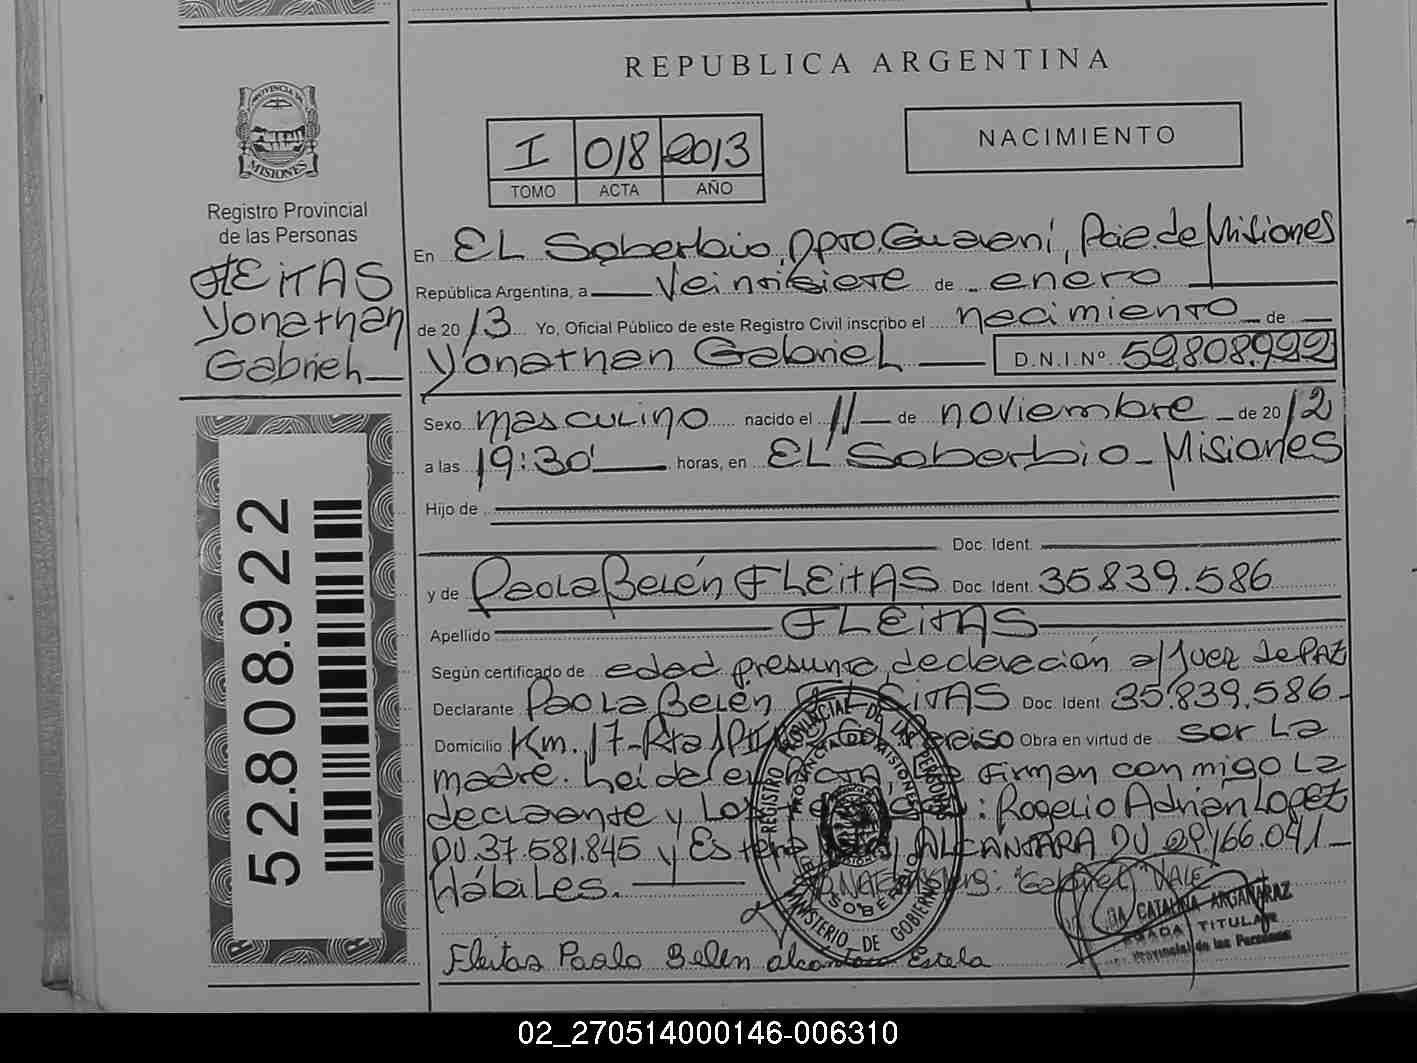 REPUBLICA ARGENTINA
PROVINCIA DE
MISIONES
Registro Provincial
de las Personas
FLEITAS
Yonathan
Gabriel
52.808.922
I 018 2013
TOMO ACTA AÑO
NACIMIENTO
En EL Soberbio, Dpto. Guaraní, Pcie. de Misiones
República Argentina, a Veintisiete de enero
de 2013 Yo, Oficial Público de este Registro Civil inscribo el nacimiento de
Yonathan Gabriel D.N.I.Nº 52.808.922
Sexo masculino nacido el 11 de noviembre de 2012
a las 19:30' horas, en EL Soberbio - Misiones
Hijo de
Doc. Ident.
y de Paola Belén FLEITAS Doc. Ident. 35.839.586
Apellido FLEITAS
Según certificado de edad presunta, declaración a/ Juez de PAZ
Declarante Paola Belén FLEITAS Doc. Ident. 35.839.586
Domicilio Km. 17 - Rta Paraiso Obra en virtud de ser La
madre. Leida el Acta, La firman conmigo La
declarante y Los testigos: Rogelio Adrian Lopez
DU. 37.581.845 y Estela ALCANTARA DU 166.041
Hábiles. "Gabriel" VALE
REGISTRO PROVINCIAL DE LAS PERSONAS
PROVINCIA DE MISIONES
MINISTERIO DE GOBIERNO
CATALINA ARGAÑARAZ
TITULAR
Provincial de las Personas
Fleitas Paola Belen Alcántara Estela
02_270514000146-006310